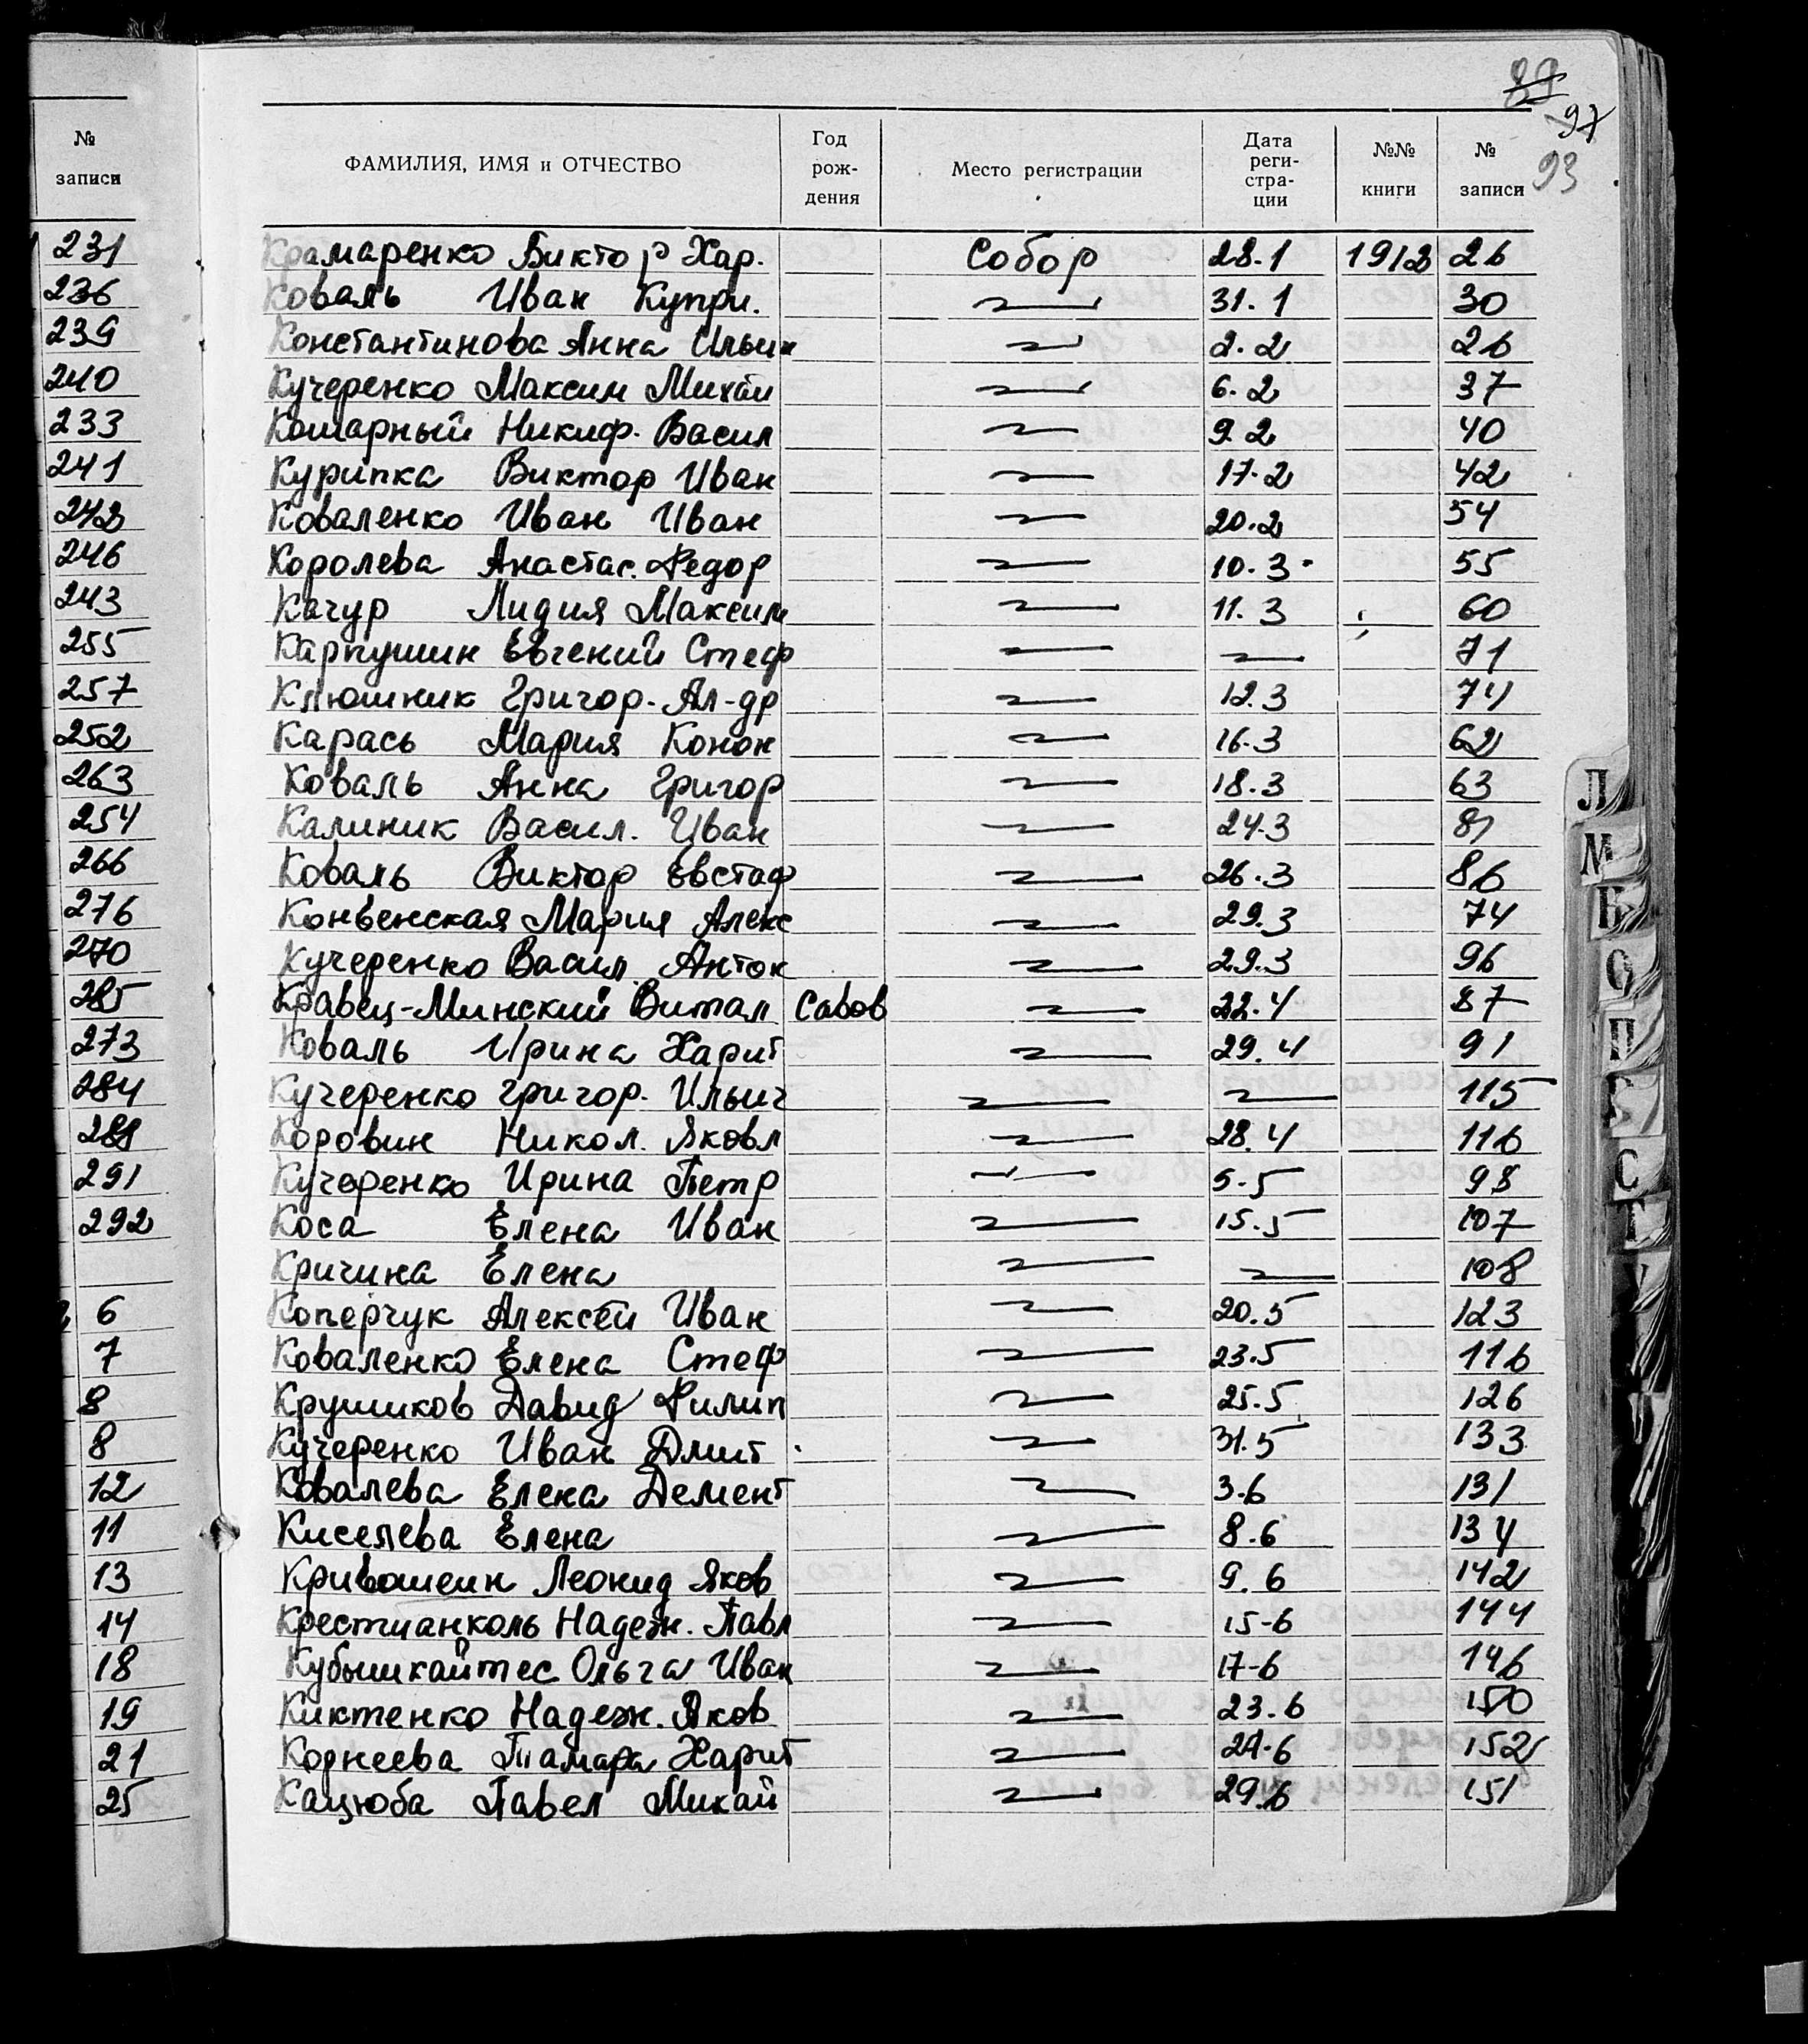 89
97
93
№ записи
ФАМИЛИЯ, ИМЯ и ОТЧЕСТВО Год рож- дения Место регистрации Дата реги- стра- ции №№ книги № записи
231 Крамаренко Виктор Хар. Собор 28.1 1912 26
236 Коваль Иван Купри. 31.1 30
239 Константинова Анна Ильин 2.2 26
240 Кучеренко Максим Михаи 6.2 37
233 Кошарный Никиф. Васил 9.2 40
241 Курипка Виктор Иван 17.2 42
242 Коваленко Иван Иван 20.2 54
246 Королева Анастас. Федор 10.3 55
243 Качур Лидия Максим 11.3 60
255 Карпушин Евгений Стеф — 71
257 Клюшник Григор. Ал-др 12.3 74
252 Карась Мария Конон 16.3 62
263 Коваль Анна Григор 18.3 63
254 Калиник Васил. Иван 24.3 81
266 Коваль Виктор Евстаф 26.3 86
276 Конвенская Мария Алекс 29.3 74
270 Кучеренко Васил. Антон 29.3 96
285 Кравец-Минский Витал Савов 22.4 87
273 Коваль Ирина Харит 29.4 91
284 Кучеренко Григор. Ильич — 115
Коровин Никол. Яковл 28.4 116
291 Кучеренко Ирина Петр 5.5 98
292 Коса Елена Иван 15.5 107
Кричина Елена — 108
6 Коперчук Алексей Иван 20.5 123
7 Коваленко Елена Стеф 23.5 116
8 Крушиков Давид Филип 25.5 126
8 Кучеренко Иван Дмит 31.5 133
12 Ковалева Елена Демент 3.6 131
11 Киселева Елена 8.6 134
13 Кривошеин Леонид Яков 9.6 142
14 Крестианколь Надеж. Павл 15-6 144
18 Кубышкайтес Ольга Иван 17-6 146
19 Киктенко Надеж. Яков 23.6 150
21 Коднеева Тамара Харит 24.6 152
25 Кацюба Павел Михай 29.6 151
Л
М
Н
О
П
Р
С
Т
У